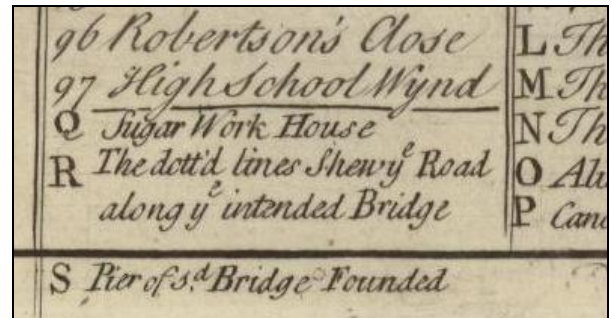 96 Robertson's Close
97 High School Wynd
Q Sugar Work House
R The dott'd lines Shew yᵉ Road
along yᵉ intended Bridge
S Pier of s.ᵈ Bridge Founded
L Th
M Th
N Th
O Al
P Can